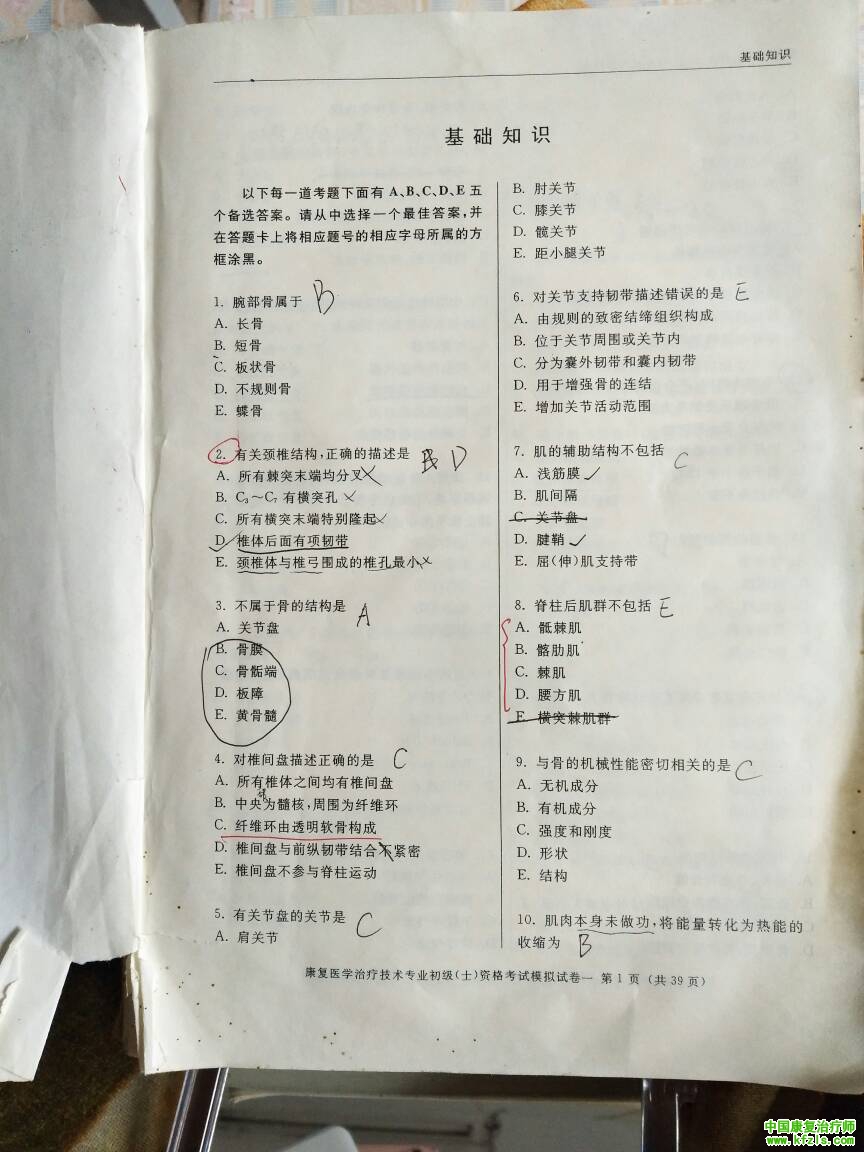 基础知识
基础知识
以下每一道考题下面有 A、B、C、D、E 五
个备选答案。请从中选择一个最佳答案,并
在答题卡上将相应题号的相应字母所属的方
框涂黑。
1. 腕部骨属于 B
A. 长骨
B. 短骨
C. 板状骨
D. 不规则骨
E. 蝶骨
2. 有关颈椎结构,正确的描述是 D
A. 所有棘突末端均分叉
B. C₃～C₇ 有横突孔
C. 所有横突末端特别隆起
D. 椎体后面有项韧带
E. 颈椎体与椎弓围成的椎孔最小
3. 不属于骨的结构是 A
A. 关节盘
B. 骨膜
C. 骨骺端
D. 板障
E. 黄骨髓
4. 对椎间盘描述正确的是 C
A. 所有椎体之间均有椎间盘
B. 中央为髓核,周围为纤维环
C. 纤维环由透明软骨构成
D. 椎间盘与前纵韧带结合不紧密
E. 椎间盘不参与脊柱运动
5. 有关节盘的关节是 C
A. 肩关节
B. 肘关节
C. 膝关节
D. 髋关节
E. 距小腿关节
6. 对关节支持韧带描述错误的是 E
A. 由规则的致密结缔组织构成
B. 位于关节周围或关节内
C. 分为囊外韧带和囊内韧带
D. 用于增强骨的连结
E. 增加关节活动范围
7. 肌的辅助结构不包括 C
A. 浅筋膜
B. 肌间隔
C. 关节盘
D. 腱鞘
E. 屈(伸)肌支持带
8. 脊柱后肌群不包括 E
A. 骶棘肌
B. 髂肋肌
C. 棘肌
D. 腰方肌
E. 横突棘肌群
9. 与骨的机械性能密切相关的是 C
A. 无机成分
B. 有机成分
C. 强度和刚度
D. 形状
E. 结构
10. 肌肉本身未做功,将能量转化为热能的
收缩为 B
康复医学治疗技术专业初级(士)资格考试模拟试卷一 第 1 页 (共 39 页)
中国康复治疗师
www.kfzls.com